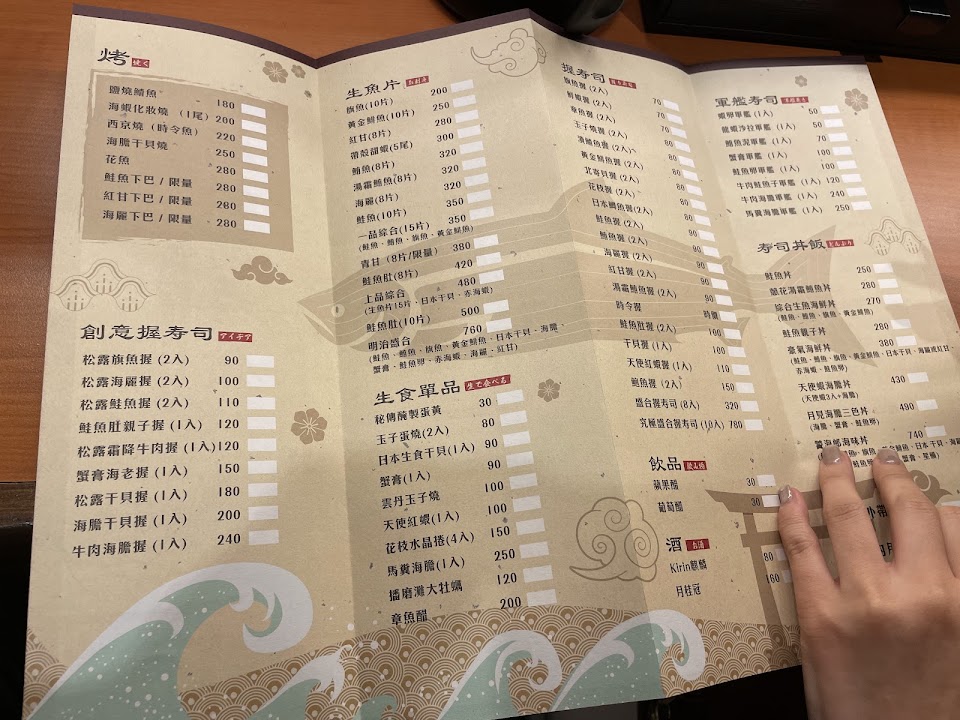 烤 焼く
鹽燒鯖魚 180
海蝦化妝燒 (1尾) 200
西京燒 (時令魚) 220
海膽干貝燒 250
花魚 280
鮭魚下巴 / 限量 280
紅甘下巴 / 限量 260
海鱺下巴 / 限量 280
創意握寿司 アイデア
松露旗魚握 (2入) 90
松露海鱺握 (2入) 100
松露鮭魚握 (2入) 110
鮭魚肚親子握 (1入) 120
松露霜降牛肉握 (1入) 120
蟹膏海老握 (1入) 150
松露干貝握 (1入) 180
海膽干貝握 (1入) 200
牛肉海膽握 (1入) 240
生魚片 お刺身
旗魚(10片) 200
黃金鯡魚(10片) 250
紅甘(8片) 280
帶殼甜蝦(5尾) 300
鮪魚(8片) 320
湯霜鰭魚(8片) 320
海鱺(8片) 320
鮭魚(10片) 350
一品綜合(15片) 350
(鮭魚、鮪魚、旗魚、黃金鯡魚)
青甘 (8片/限量) 380
鮭魚肚(8片) 420
上品綜合 480
(生魚片15片、日本干貝、赤海蝦)
鮭魚肚(10片) 500
明治盛合 760
(鮭魚、鮪魚、旗魚、黃金鯡魚、日本干貝、海膽、
蟹膏、鮭魚卵、赤海蝦、海鱺、紅甘)
生食單品 生で食べる
秘傳醃製蛋黃 30
玉子蛋燒(2入) 80
日本生食干貝(1入) 90
蟹膏(1入) 90
雲丹玉子燒 100
天使紅蝦(1入) 100
花枝水晶捲(4入) 150
馬糞海膽(1入) 250
播磨灘大牡蠣 120
章魚醋 200
握寿司
旗魚握 (2入) 70
鮮蝦握 (2入) 70
章魚握 (2入) 70
玉子燒握 (2入) 70
漬鮪魚握 (2入) 80
黃金鯡魚握 (2入) 80
北寄貝握 (2入) 80
花枝握 (2入) 80
日本鯛魚握(2入) 80
鮭魚握 (2入) 90
鮪魚握 (2入) 90
海鱺握 (2入) 90
紅甘握 (2入) 90
湯霜鰭魚握 (2入) 90
時令握 時價
鮭魚肚握 (2入) 100
干貝握 (1入) 100
天使紅蝦握 (1入) 110
鮑魚握 (2入) 150
盛合握寿司 (8入) 320
究極盛合握寿司 (10入) 780
飲品
蘋果醋 30
葡萄醋 30
酒 お酒
Kirin麒麟 80
月桂冠 160
軍艦寿司
蝦卵軍艦 (1入) 50
龍蝦沙拉軍艦 (1入) 50
鮪魚泥軍艦 (1入) 70
蟹膏軍艦 (1入) 100
鮭魚卵軍艦 (1入) 100
牛肉鮭魚子軍艦 (1入) 120
牛肉海膽軍艦 (1入) 240
馬糞海膽軍艦 (1入) 250
寿司丼飯 どんぶり
鮭魚丼 250
蔥花湯霜鰭魚丼 280
綜合生魚海鮮丼 270
(鮭魚、鮪魚、旗魚、黃金鯡魚)
鮭魚親子丼 280
豪氣海鮮丼 380
(鮭魚、鮪魚、旗魚、黃金鯡魚、日本干貝、海鱺或紅甘、
赤海蝦、鮭魚卵)
天使蝦海膽丼 430
(天使蝦3入、海膽)
月見海膽三色丼 490
(海膽、蟹膏、鮭魚卵)
海味丼 740